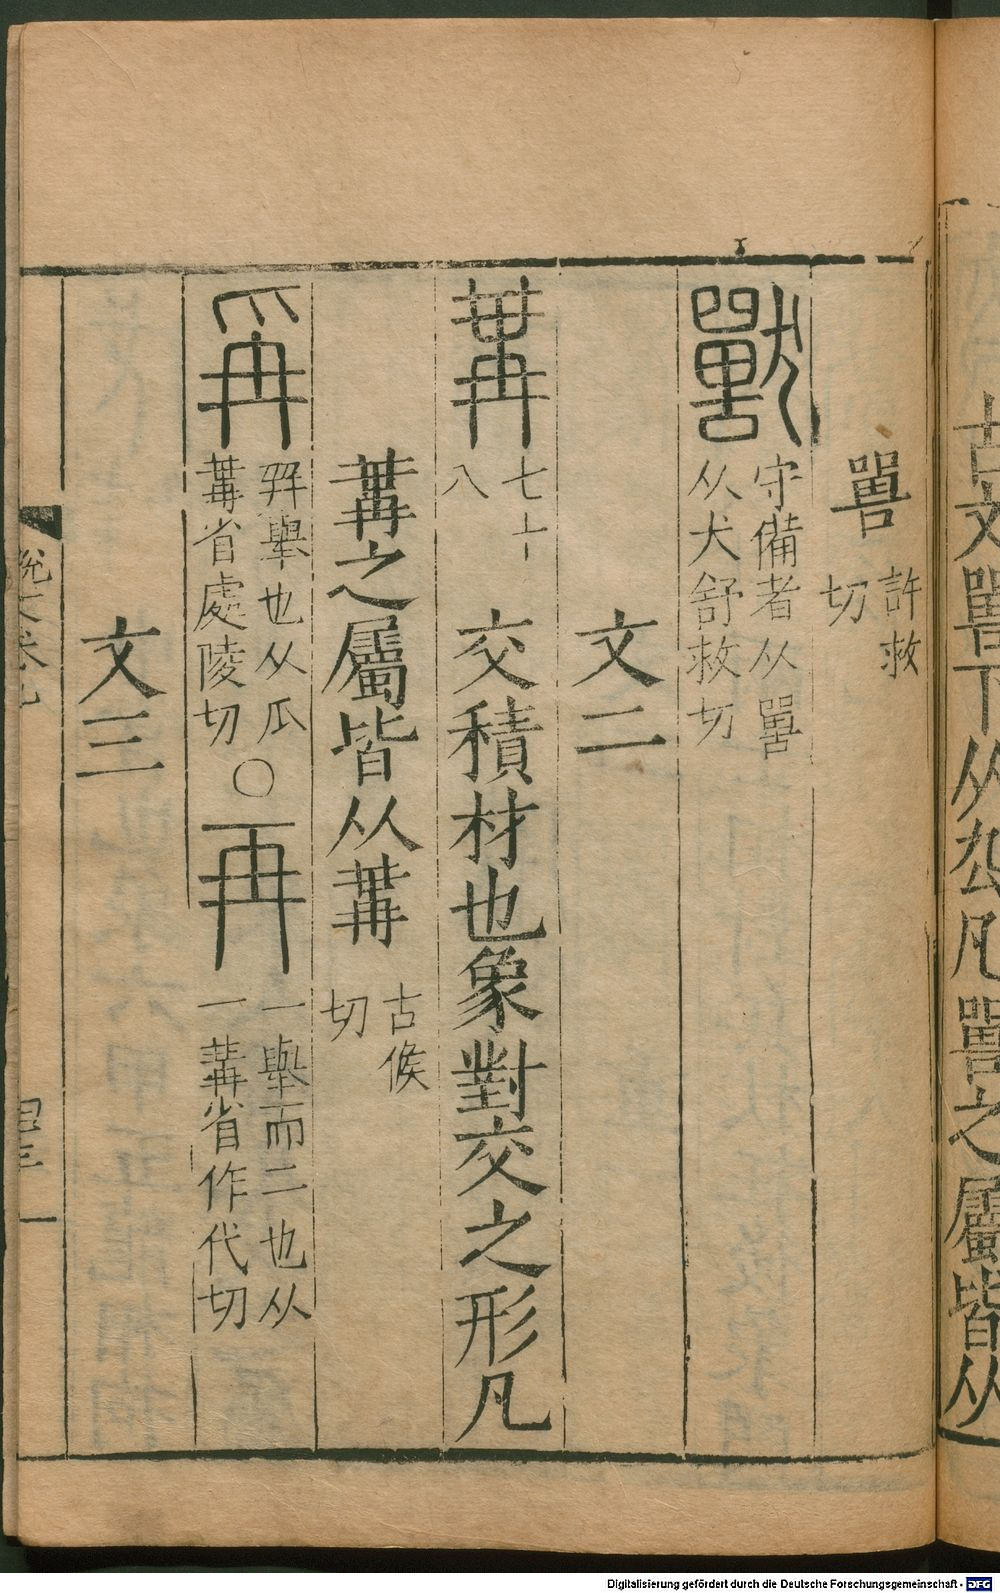 古文嘼下从厹凡嘼之屬皆从
嘼許救切
獸守備者从嘼从犬舒救切
文二
冓七十八交積材也象對交之形凡
冓之屬皆从冓古候切
爯幷舉也从爪冓省處陵切〇再一舉而二也从一冓省作代切
文三
說文卷九
Digitalisierung gefördert durch die Deutsche Forschungsgemeinschaft - DFG